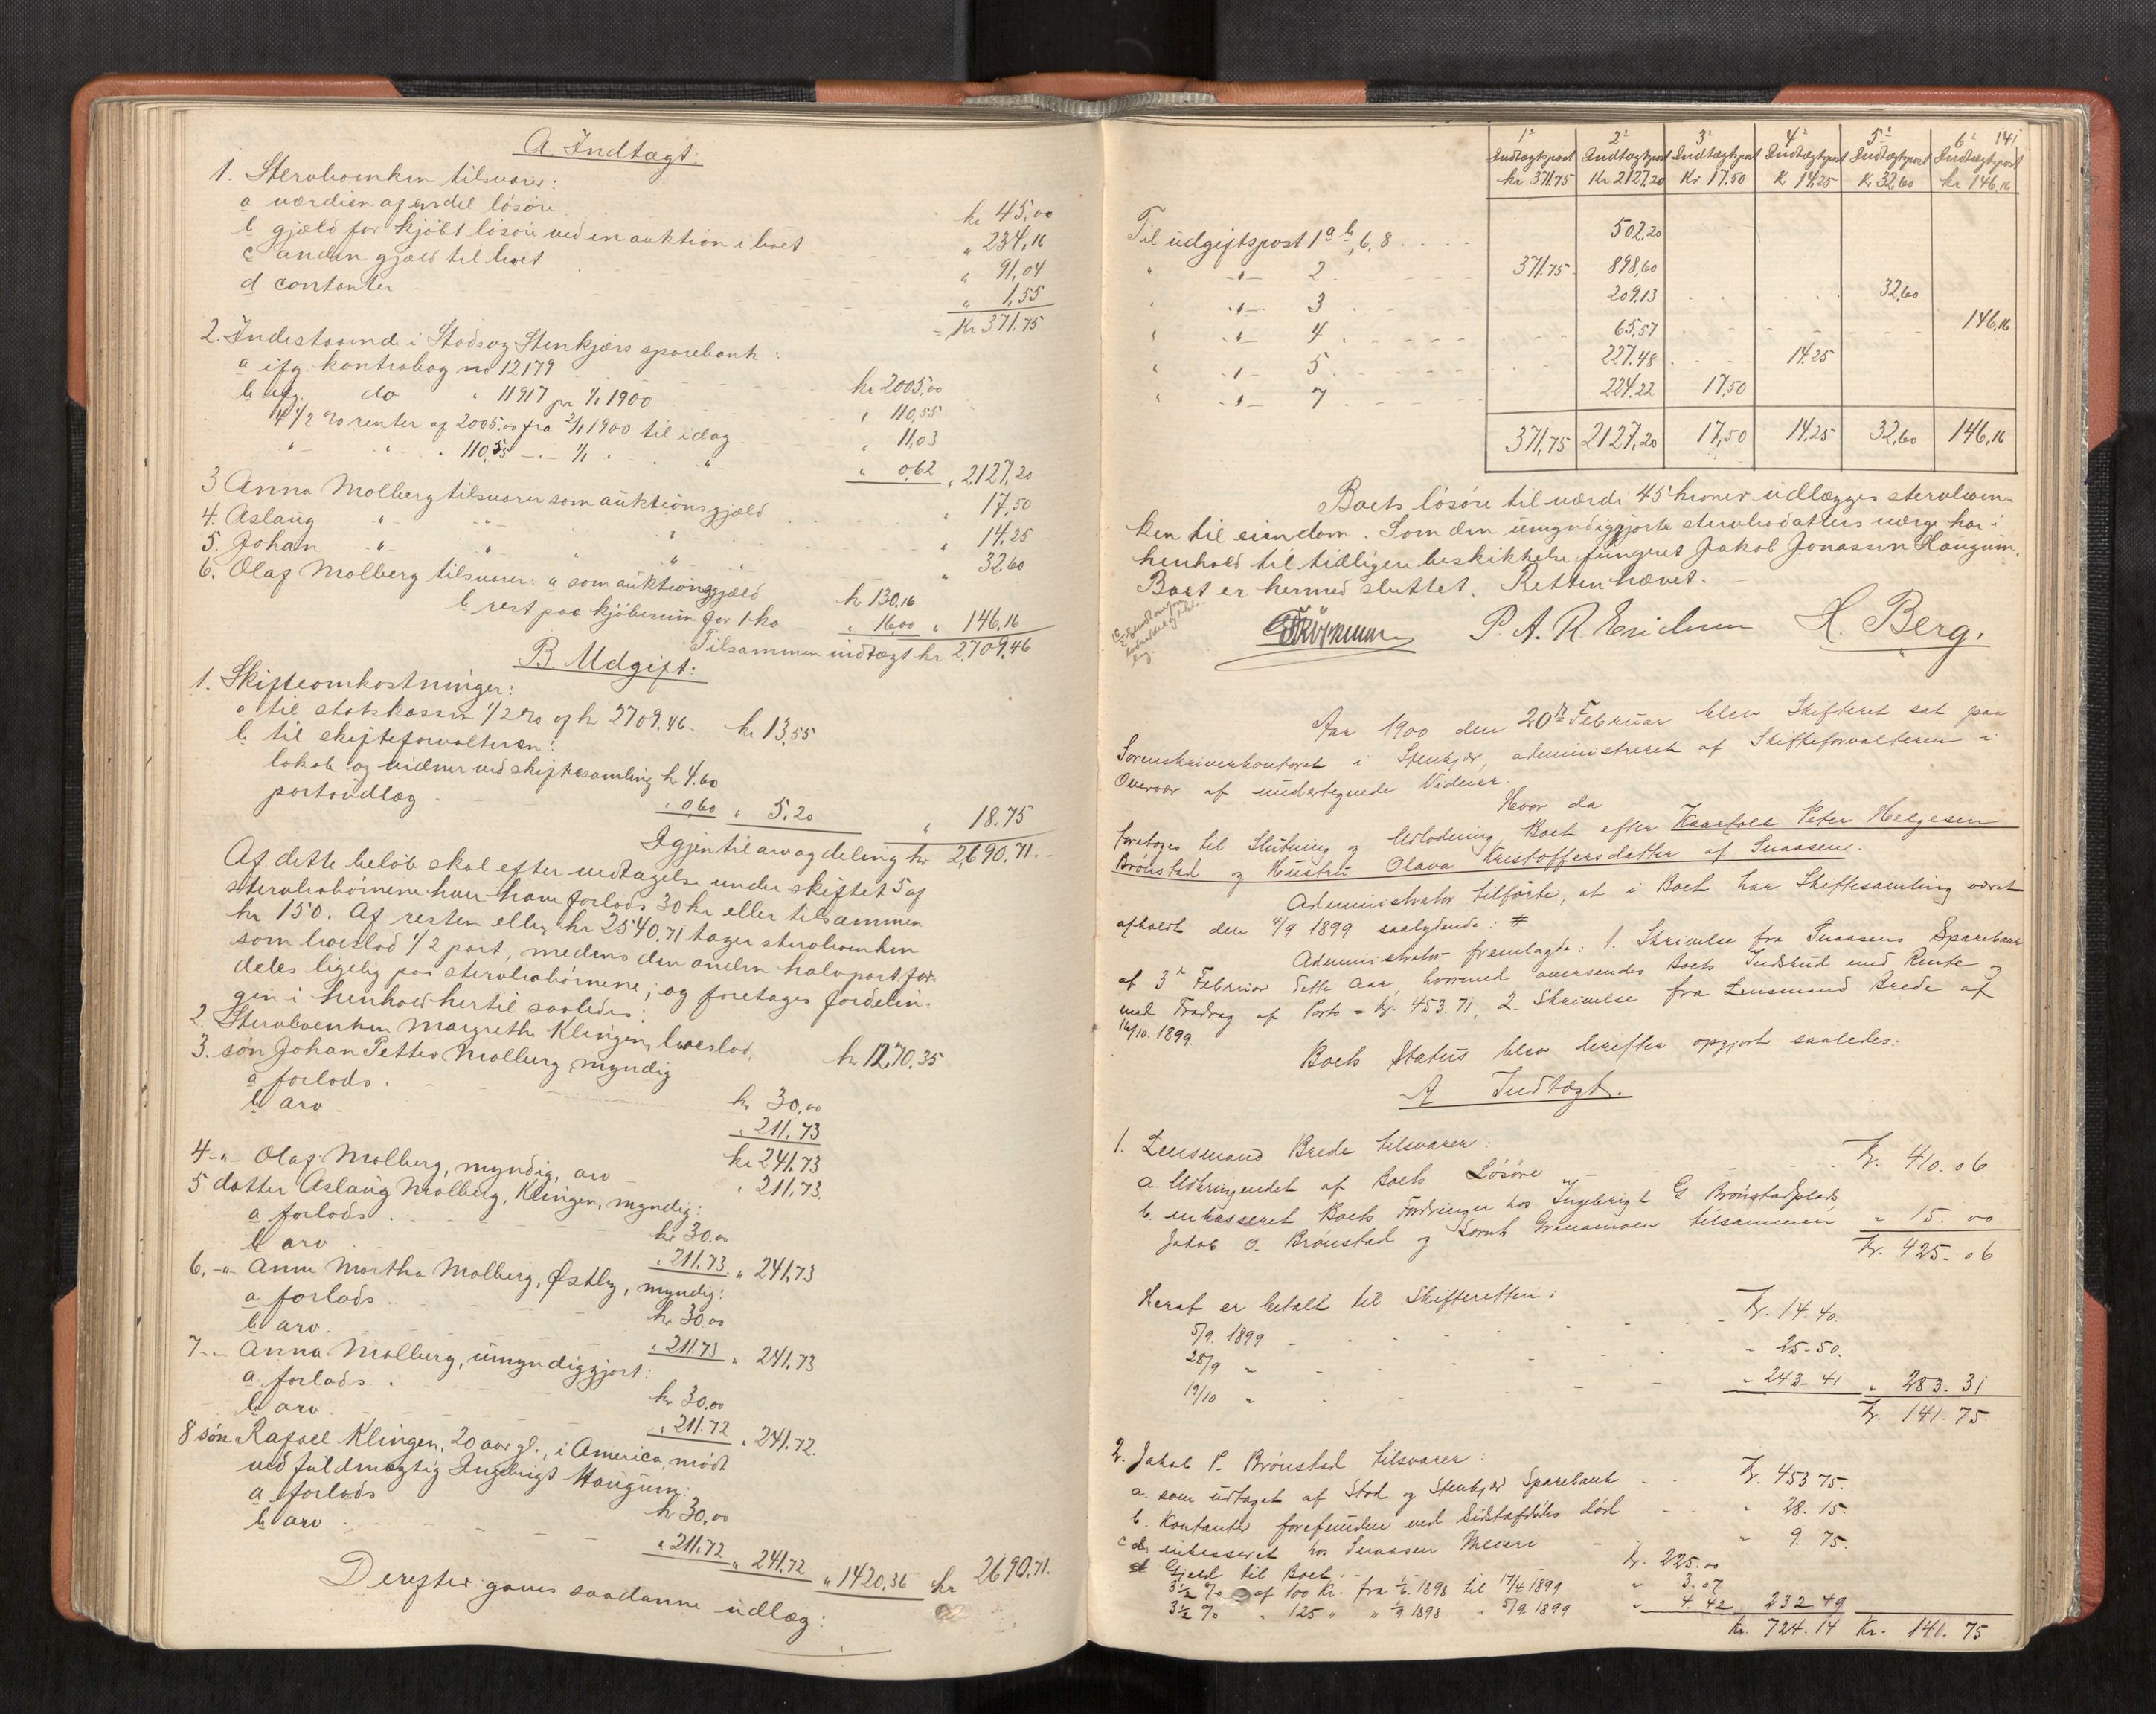 A. Indtægt:
1. Stervboenken tilsvarer:
a værdien af endel lösöre kr 45,00
b gjæld for kjöbt lösöre ved en auktion i boet " 234,16
c anden gjæld til boet " 91,04
d contanter " 1,55
Kr 371.75
2. Indestaaende i Stods og Stenkjærs sparebank:
a ifg. kontrabog no 12179 kr 2005,00
b ifg. do " 11917 pr 1/1 1900 " 110,55
4 1/2 % renter af 2005.00 fra 2/1 1900 til idag " 11,03
" " " 110,55 -"- 1/1 " " " 0,62 " 2127,20
3 Anna Molberg tilsvarer som auktionsgjæld " 17,50
4. Aslaug " " " " 14.25
5. Johan " " " " " 32,60
6. Olaf Molberg tilsvarer: a som auktionsgjæld kr 130,16
b rest paa kjöbesum for 1 ko " 16,00 " 146,16
Tilsammen indtægt kr 2,709,46
B. Udgift:
1. Skifteomkostninger:
a til statskassen 1/2 % af kr 2709,46. kr 13,55
b til skifteforvalteren:
lokale og vidner ved skiftesamling kr 4.60
portoudlæg " 0,60 " 5.20 " 18.75
Igjen til arv og deling kr 2690,71.
Af dette beløb skal efter vedtagelse under skiftet 5 af
stervbobörnene hver have forlods 30 kr eller tilsammen
kr 150. Af resten eller kr 2540.71 tager stervboenken
som boeslod 1/2 part, medens den anden halvpart for-
deles ligelig paa stervbobörnene; og foretages fordelin-
gen i henhold hertil saaledes:
2. Stervboenken Margrethe Klingen, boeslod, kr 1270,35
3. sön Johan Petter Molberg myndig
a forlods. kr 30,00
b arv " 211,73
kr 241,73
4 -"- Olaf Molberg, myndig, arv " 211,73.
5 datter Aslaug Molberg, Klingen, myndig:
a forlods. kr 30.00
b arv " 211.73 " 241,73
6. -"- Anne Martha Molberg, Østby, myndig:
a forlods. kr 30.00
b arv. " 211.73 " 241,73
7 -"- Anna Molberg, umyndiggjort:
a forlods. kr 30,00
b arv " 211.72 " 241.72.
8 sön Rafael Klingen, 20 aar gl., i America, mödt
ved fuldmægtig Ingebrigt Haugum:
a forlods kr 30,00
b arv " 211.72 " 241,72 " 1420,36 kr 2690,71.
Derefter gaves saadanne udlæg:
141
1ste 2den 3die 4de 5te 6te
Indtægtspost Indtægtspost Indtægtspost Indtægtspost Indtægtspost Indtægtspost
kr 371.75 Kr 2127,20 Kr 17,50 K 14,25 K 32,60 kr 146,16
Til udgiftspost 1 a b, 6, 8 502,20
" -"- 2 371.75 898,60
" -"- 3 209.13 32,60
" -"- 4 65,57 146,16
" -"- 5 227.48 14.25
" -"- 7 224,22 17,50
371,75 2127,20 17,50 14.25 32,60 146,16
Boets lösöre til værdi 45 kroner udlægges stervboen-
ken til eiendom. Som den umyndiggjorte stervbodatters værge har i
henhold til tidligere beskikkelse fungeret Jakob Jonassen Haugum.
Boet er hermed sluttet. Retten hævet.
P. A. R. Erichsen H. Berg.
Aar 1900 den 20de Februar blev Skifteret sat paa
Sorenskriverkontoret i Stenkjær, administreret af Skifteforvalteren i
Overvær af undertegnede Vidner.
Hvor da
foretoges til Slutning og Udlodning Boet efter Kaarfolk Peter Helgesen
Brönstad og Hustru Olava Kristoffersdatter af Snaasen.
Administrator tilförte, at i Boet har Skiftesamling været
afholdt den 4/9 1899 saalydende: #
Administrator fremlagde: 1. Skrivelse fra Snaasens Sparebank
af 3de Februar dette Aar, hvormed oversendes Boets Indskud med Rente og
med Fradrag af Porto = Kr. 453.71, 2. Skrivelse fra Lensmand Brede af
16/10. 1899.
Boets Status blev derefter opgjort saaledes:
A Indtægt.
1. Lensmand Brede tilsvarer:
a. Udbringendet af Boets Lösöre Kr. 410.06
b. inkasseret Boets Fordringer hos Ingebrigt G Brönstadplads,
Jakob O. Brönstad og Lornts Granamoen tilsammen " 15.00
Kr. 425.06
Heraf er betalt til Skifteretten:
5/9. 1899 Kr. 14.40.
28/9 " " 25-50.
19/10 " " 243-41 " 283.31
Kr. 141.75
2. Jakob P. Brönstad tilsvarer:
a. som udtaget af Stod og Stenkjær Sparebank Kr. 453.75.
b. Kontanter forefunden ved Sidstafdödes död " 28.15.
c inkasseret hos Snaasen Meieri " 9.75.
d Gjæld til Boet Kr. 225.00
3½ % af 100 Kr. fra 1/6 1898 til 17/4 1899 " 3.07
3½ % " 125 " " 1/9 1898 " 5/9 1899 " 4.42 232 49
Kr. 724.14 Kr. 141.75